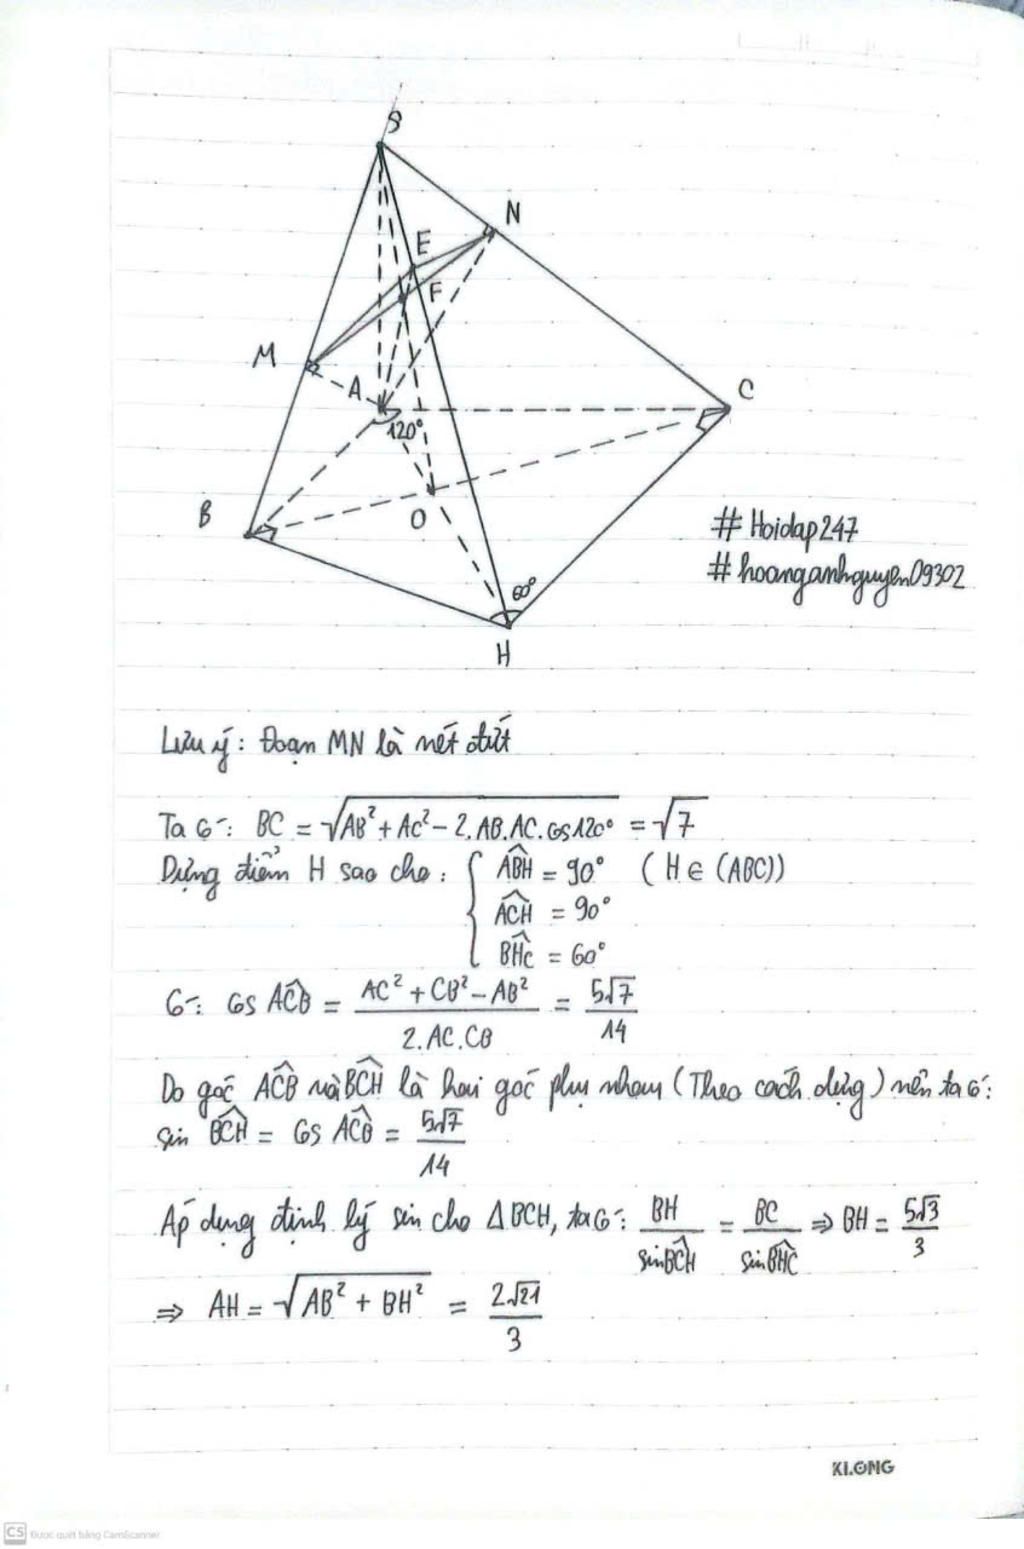 S
N
E
F
M
A
C
120°
B
O
#Hoidap247
#hoanganhnguyen09302
60°
H
Lưu ý: Đoạn MN là nét đứt
Ta có: BC = √(AB² + AC² - 2.AB.AC.cos120°) = √7
Dựng điểm H sao cho: { ABH = 90° (H ∈ (ABC))
ACH = 90°
BHC = 60°
Có: cos ACB = (AC² + CB² - AB²) / (2.AC.CB) = 5√7 / 14
Do góc ACB và BCH là hai góc phụ nhau (Theo cách dựng) nên ta có:
sin BCH = cos ACB = 5√7 / 14
Áp dụng định lý sin cho ΔBCH, ta có: BH / sinBCH = BC / sinBHC ⇒ BH = 5√3 / 3
⇒ AH = √(AB² + BH²) = 2√21 / 3
KLONG
CS Được quét bằng CamScanner